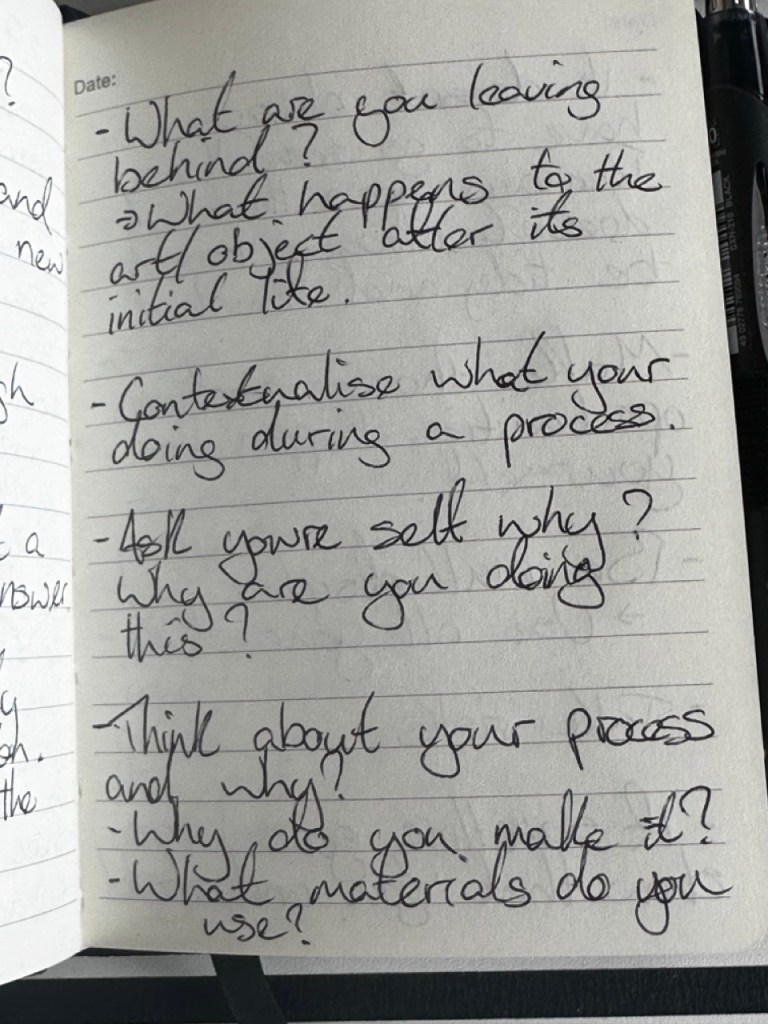 ?
and
new
gh
t a
nswer
y
on.
the
Date:
- What are you leaving
behind?
→ What happens to the
art/object after its
initial life.
- Contextualise what your
doing during a process.
- Ask youre self why?
Why are you doing
this?
- Think about your process
and why?
- Why do you make it?
- What materials do you
use?